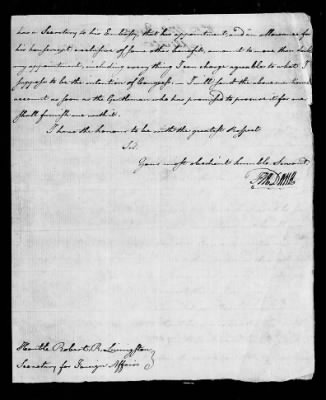 has a Secretary to his Embassy, that his appointment, and an Allowance for
his transcript exclusive of some other benefits, amount to more than double
my appointment, including every thing I can charge agreeable to what I
suppose to be the intention of Congress. I will send the above mentioned
account as soon as the Gentleman who has promised to procure it for me
shall furnish me with it.
I have the honour to be with the greatest Respect
Sir,
Your most obedient humble Servant
FRA DANA
Honble. Robert R. Livingston
Secretary for Foreign Affairs